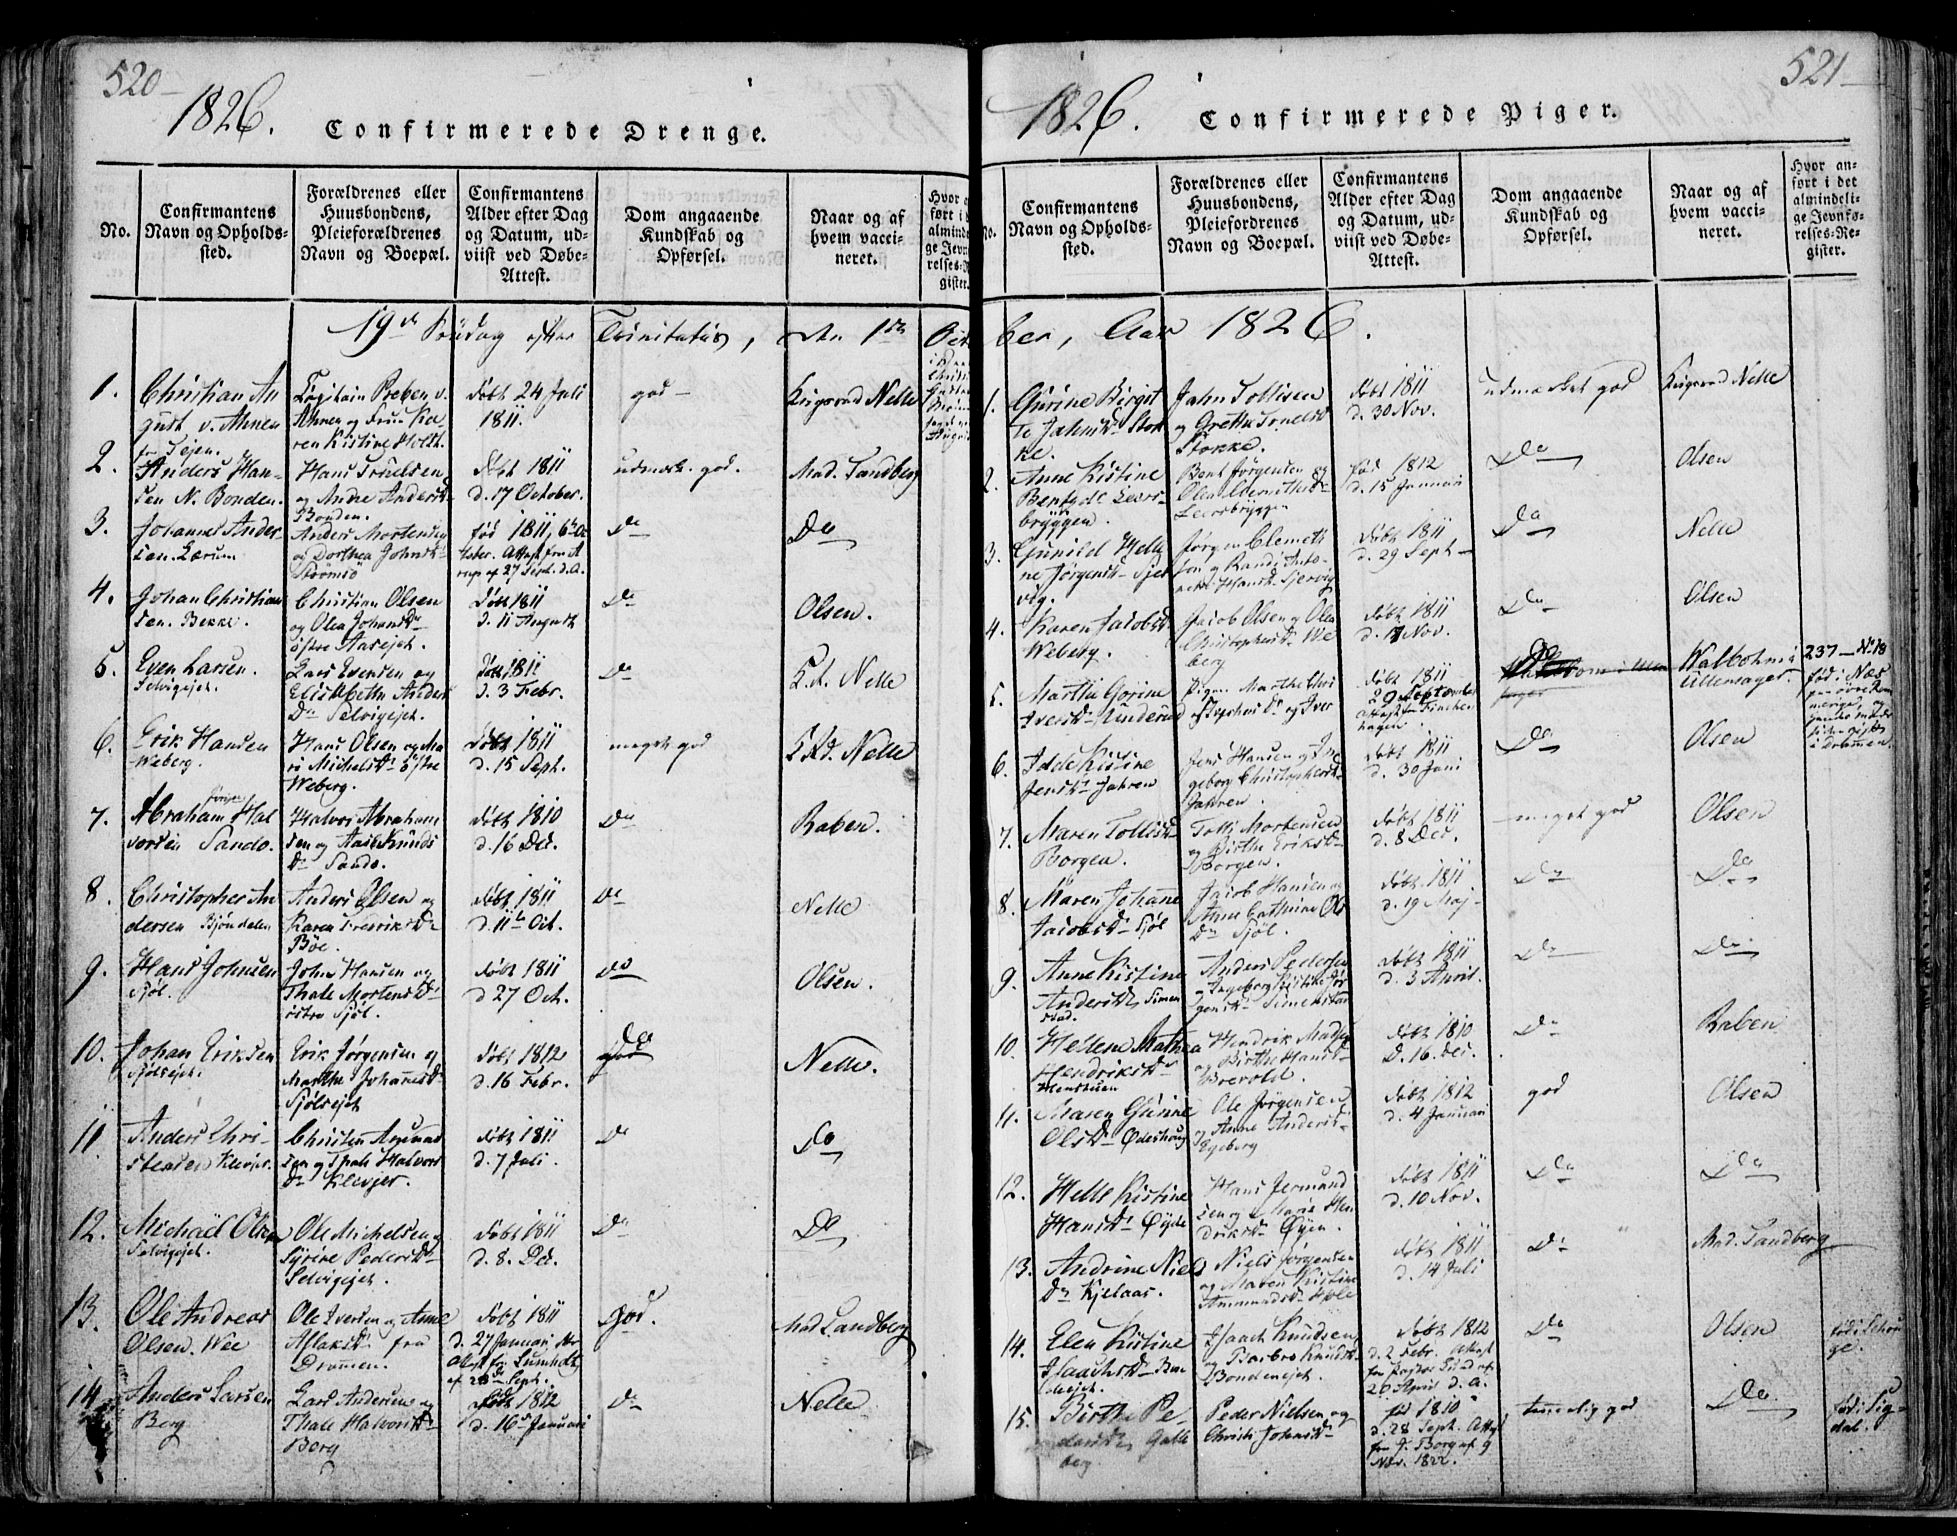 520
1826. Confirmerede Drenge.
No.
Confirmantens Navn og Opholds-
sted.
Forældrenes eller
Huusbondens,
Pleieforældrenes
Navn og Boepæl.
Confirmantens
Alder efter Dag
og Datum, ud-
viist ved Døbe-
Attest.
Dom angaaende
Kundskab og
Opførsel.
Naar og af
hvem vacci-
neret.
19de Søndag efter Trinitatis, den 1ste Octo
1.
Christian Au
gust v. Ahnen
Capitain Preben v.
Ahnen og Frue Ka
ren Kistine Holdt.
døbt 24 Juli
1811.
god
Krigsraad Nelle
2.
Anders Han-
sen N. Bonden.
Hans Truelsen
og Andre Andersd
Bonden.
døbt 1811
d. 17 October.
udmærk. god.
Mad. Sandberg
3.
Johannes Ander
sen. Lærum.
Anders Mortensen
og Dorthea Johnsd
Strömsö
fød 1811, 6te Oc
tober. Attest fra
af 27 Sept. d. A.
Do
Do
4.
Johan Christian
sen. Bekke.
Christian Olsen
og Olea Johansdr
østre Aasejet.
Døbt 1811
d. 11 Augustt
Do
Olsen.
5.
Even Larsen.
Selvigejet.
Lars Evensen og
Elisabeth Anders
Dr Selvigejet.
Døbt 1811
d. 3 Febr.
Do
K.d. Nelle
6.
Erik Hansen
Weberg.
Hans Olsen og Ma
ri Michelsdr østre
Weberg.
Døbt 1811
d. 15 Sept.
meget god
K.Rd. Nelle
7.
Abraham Hal
vorsen Sando.
Halvor Abraham
sen og Aase Knuds
Dr Sando.
døbt 1810
d. 16 Dec.
Do
Raben.
8.
Christopher An
dersen Bjøndalen
Anders Olsen og
Karen Fredriksdr
Böe.
døbt 1811
d. 11te Oct.
Do
Nelle
9.
Hans Johnsen
Sjøl.
John Hansen og
Thale Mortensdr
østre Sjøl.
døbt 1811
d 27 Oct.
Do
Olsen.
10.
Johan Eriksen
Sjølsejet.
Erik Jørgensen og
Marthe Johannesdr
Sjølsejet
døbt 1812
d. 16 Febr.
Do
Nelle.
11
Anders Chri-
stensen Klevjer.
Christen Amund
sen og Thale Halvors
Dr Klevjer.
døbt 1811
d. 7 Juli.
Do
Do
12.
Michael Olsen
Selvigejet.
Ole Michelsen og
Syrine Pedersdr
Selvigejet.
døbt 1811
d. 8. Dec.
Do
Do
13.
Ole Andreas
Olsen. Wee
Ole Iversen og Anne
Aslaksd fra
Drammen.
døbt 1811
d. 27 Januari
af 28 Sept.
God.
Mad Sandberg
14.
Anders Larsen
Berg
Lars Andersen og
Thale Halvorsdr
Berg
døbt 1812
d. 16 Januari
Do
Nelle
521
1826. Confirmerede Piger.
Confirmantens
Navn og Opholds-
sted.
Forældrenes eller
Huusbondens,
Pleiefordrenes
Navn og Boepæl.
Confirmantens
Alder efter Dag
og Datum, ud-
viist ved Døbe-
Attest.
Dom angaaende
Kundskab og
Opførsel.
Naar og af
hvem vacci-
neret.
Hvor an-
ført i det
almindeli-
ge Jevnfø-
relses-Re-
gister.
ber, Aar 1826.
1.
Gurine Birgit
te Jahnsdr Stok
ke.
Jahn Tollisen
og Grethe Truelsd
Stokke.
døbt 1811
d. 30 Nov.
udmærket god
Krigsraad Nelle
2.
Anne Kistine
Bentsdr Leers-
bryggen.
Bent Jørgensen og
Leersbryggen
fød 1812
d. 15 Januari
Do
Olsen
3.
Gunild Helle
ne Jørgensd Sjer
vig.
Jørgen Clemet
sen og Randi Anto-
nette Hansd Sjervig
døbt 1811
d. 29 Sept
Do
Nelle
4.
Karen Jacobsd
Weberg.
Jacob Olsen og Olea
Christophersdr We
berg
døbt 1811
d. 17 Nov.
Do
Olsen
5.
Marthe Gorine
Iversdr Kinderud
Pigen Marthe Chri
stophersdr og Iver
døbt 1811
29 September
Do
Ullensager.
237 No 18
fød i Næs
i Drammen.
6.
Idde Kistine
Jensdr Jahren
Jens Hansen og In
geborg Christophersd
Jahren.
døbt 1811
d. 30 Juni
Do
Olsen
7.
Maren Tollisd
Borgen.
Tolli Mortensen
og Birthe Eriksdr
Borgen.
døbt 1811
d. 8 Dec.
meget god
Olsen
8.
Maren Johanne
Jacobsdr Sjøl
Jacob Hansen og
Anne Cathrine Ols
Dr Sjøl.
døbt 1811
d. 19 Maj
Do
Do
9.
Anne Kistine
Andersdr Simen
stad.
Anders Pedersen
og Ingeborg Kistine Jør
gensd Simenstad
døbt 1811
d. 3 April.
Do
Do
10.
Hellene Mathea
Hendriksdr
Hendrik Madsen
og Birthe Hansd
Brevold.
døbt 1810
d. 16. Dec.
Do
Raben
11.
Maren Gurine
Olsdr Ødeshaug
Ole Jørgensen
og Anne Andersd
Egeberg
døbt 1812
d. 4 Januari
god
Olsen
12.
Helle Kistine
Hansdr Øyde
Hans Jermund
sen og Marie Hen
driksdr Øyen.
døbt 1811
d. 10 Nov.
Do
Do
13.
Andrine Niels
Dr Kjelaas.
Niels Jørgensen
og Maren Kistine
Ammundsd Hole
døbt 1811
d. 14 Juli
Do
Mad. Sandberg
14.
Elen Kistine
Isaachsdr Bon
Isaach Knudsen
og Barbro Knudsd
Bondenejet.
døbt 1812
d. 2 Febr. Attest
26 April d. A.
Do
Olsen
15.
Birthe Pe-
dersdr Galle
berg
Peder Nielsen og
Christi Johnsdr
fød 1810
d. 28 Sept. Attest
fra J. Borg af 9
Nov. 1822.
temmelig god
Do
fød i Sig-
dal.